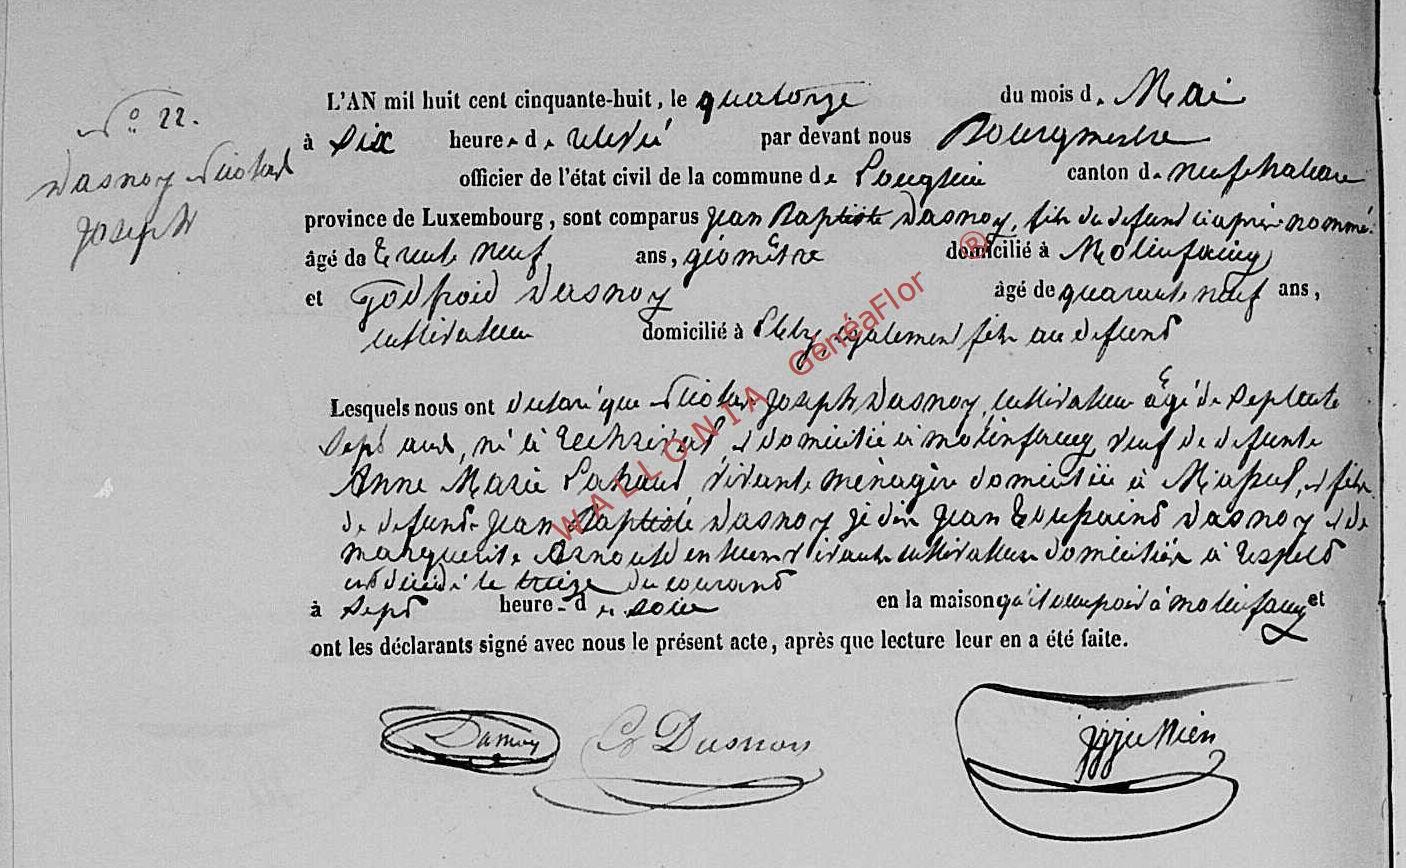 N° 22.
Dasnoy Nicolas
Joseph
L'AN mil huit cent cinquante-huit, le quatorze du mois de Mai
à dix heures de relevé par devant nous Bourgmestre
officier de l'état civil de la commune de canton de neufchateau
province de Luxembourg, sont comparus Jean Baptiste Dasnoy, fils du défunt ci après nommé
âgé de trente neuf ans, géomètre domicilié à Molinfaing
et Godfroid Dasnoy âgé de quarante neuf ans,
cultivateur domicilié à également fils au défunt
Lesquels nous ont déclaré que Nicolas Joseph Dasnoy, cultivateur âgé de septante
sept ans, né à et domicilié à molinfaing veuf de défunte
Anne Marie vivante ménagère domiciliée à et fils
de défunt Jean Baptiste Dasnoy Jean Dasnoy et de
marguerite Arnould en leur vivant cultivateurs domiciliés à
est décédé le treize du courant
à sept heures du soir en la maison qu'il occupoit à molinfaing et
ont les déclarants signé avec nous le présent acte, après que lecture leur en a été faite.
Dasnoy G Dasnoy
WALLONIA GénéaFlor ®